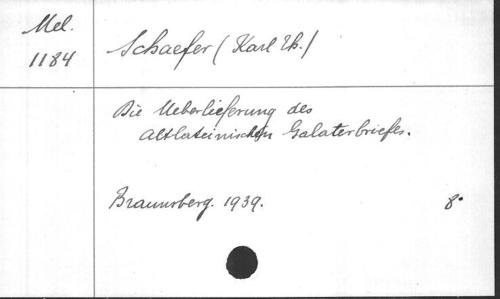 Mel.
1184
Schaefer (Karl Th.)
Die Ueberlieferung des
altlateinischen Galaterbriefes.
Braunsberg. 1939. 8°